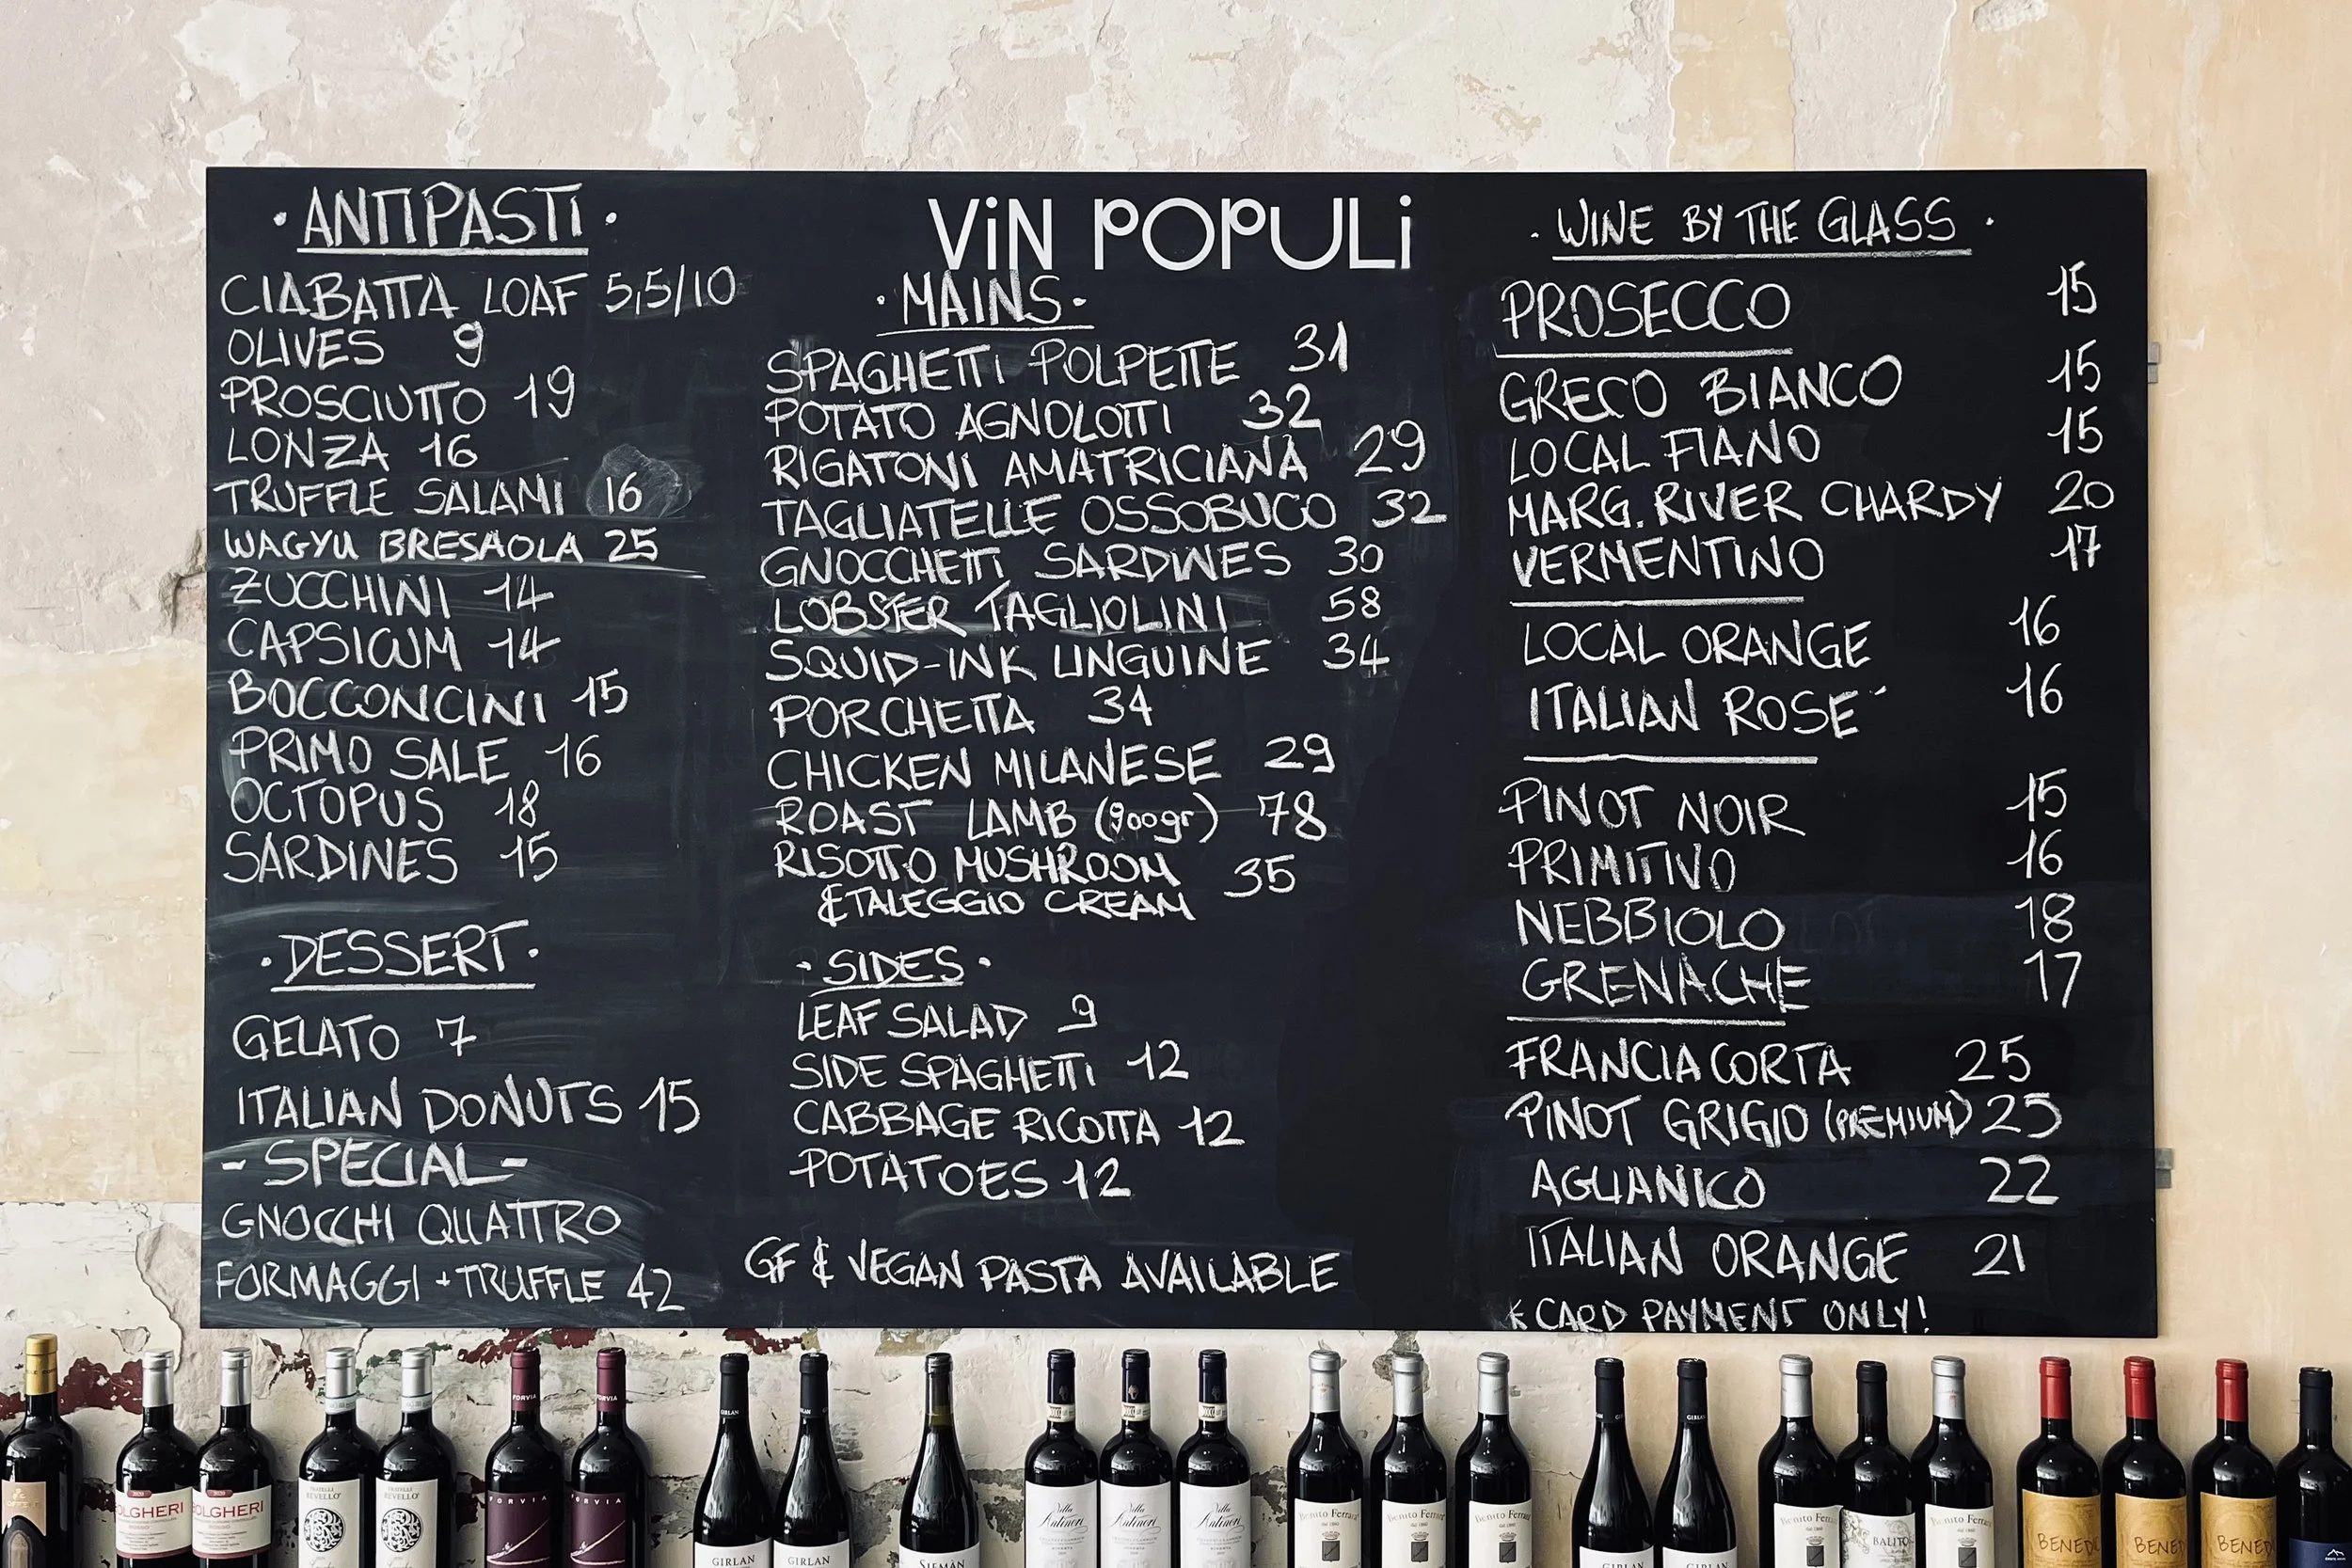 · ANTIPASTI ·
CIABATTA LOAF 5,5/10
OLIVES 9
PROSCIUTTO 19
LONZA 16
TRUFFLE SALAMI 16
WAGYU BRESAOLA 25
ZUCCHINI 14
CAPSICUM 14
BOCCONCINI 15
PRIMO SALE 16
OCTOPUS 18
SARDINES 15
· DESSERT ·
GELATO 7
ITALIAN DONUTS 15
- SPECIAL -
GNOCCHI QUATTRO
FORMAGGI + TRUFFLE 42
ViN POPULi
· MAINS ·
SPAGHETTI POLPETTE 31
POTATO AGNOLOTTI 32
RIGATONI AMATRICIANA 29
TAGLIATELLE OSSOBUCO 32
GNOCCHETTI SARDINES 30
LOBSTER TAGLIOLINI 58
SQUID-INK LINGUINE 34
PORCHETTA 34
CHICKEN MILANESE 29
ROAST LAMB (900gr) 78
RISOTTO MUSHROOM 35
& TALEGGIO CREAM
· SIDES ·
LEAF SALAD 9
SIDE SPAGHETTI 12
CABBAGE RICOTTA 12
POTATOES 12
GF & VEGAN PASTA AVAILABLE
· WINE BY THE GLASS ·
PROSECCO 15
GRECO BIANCO 15
LOCAL FIANO 15
MARG. RIVER CHARDY 20
VERMENTINO 17
LOCAL ORANGE 16
ITALIAN ROSE´ 16
PINOT NOIR 15
PRIMITIVO 16
NEBBIOLO 18
GRENACHE 17
FRANCIACORTA 25
PINOT GRIGIO (PREMIUM) 25
AGLIANICO 22
ITALIAN ORANGE 21
* CARD PAYMENT ONLY!
OLGHERI
OLGHERI
FRATELLI
REVELLO
FRATELLI
REVELLO
FORVIA
FORVIA
FORVIA
FORVIA
GIRLAN
GIRLAN
GIRLAN
GIRLAN
SIEMÀN
Villa
Antinori
Villa
Antinori
Villa
Antinori
Benito Ferrara
Benito Ferrara
Benito Ferrara
GIRLAN
GIRLAN
GIRLAN
GIRLAN
Benito Ferrara
BALITO
Benito Ferrara
BENED
BENED
BENED